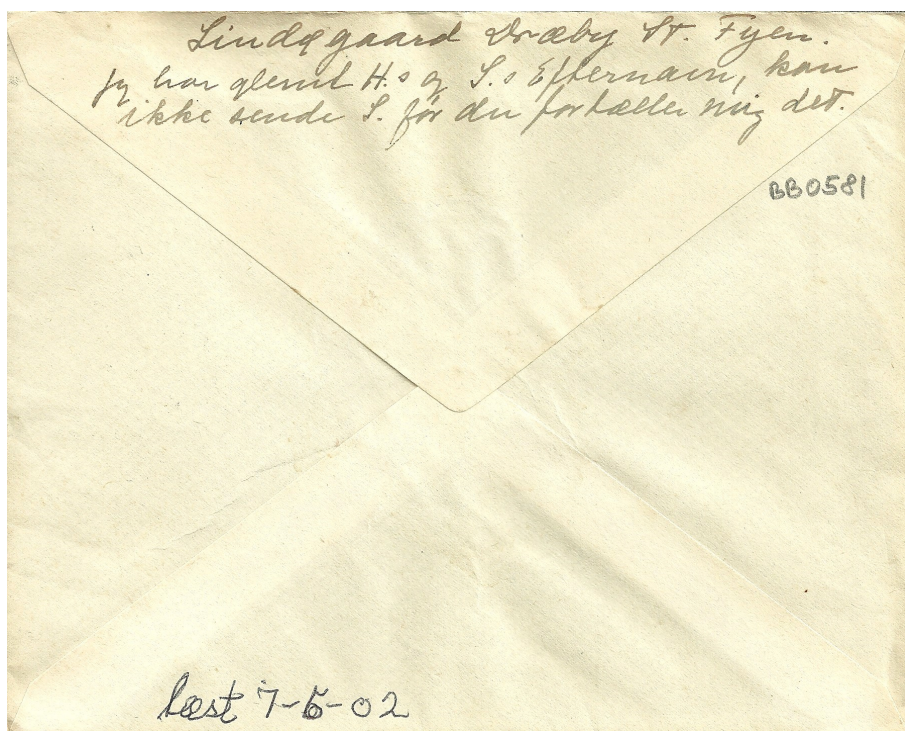 Lindøgaard Dræby St. Fyen.
Jeg har glemt H.s og S.s Efternavn, kan
ikke sende S. før du fortæller mig det.
BB0581
læst 7-5-02